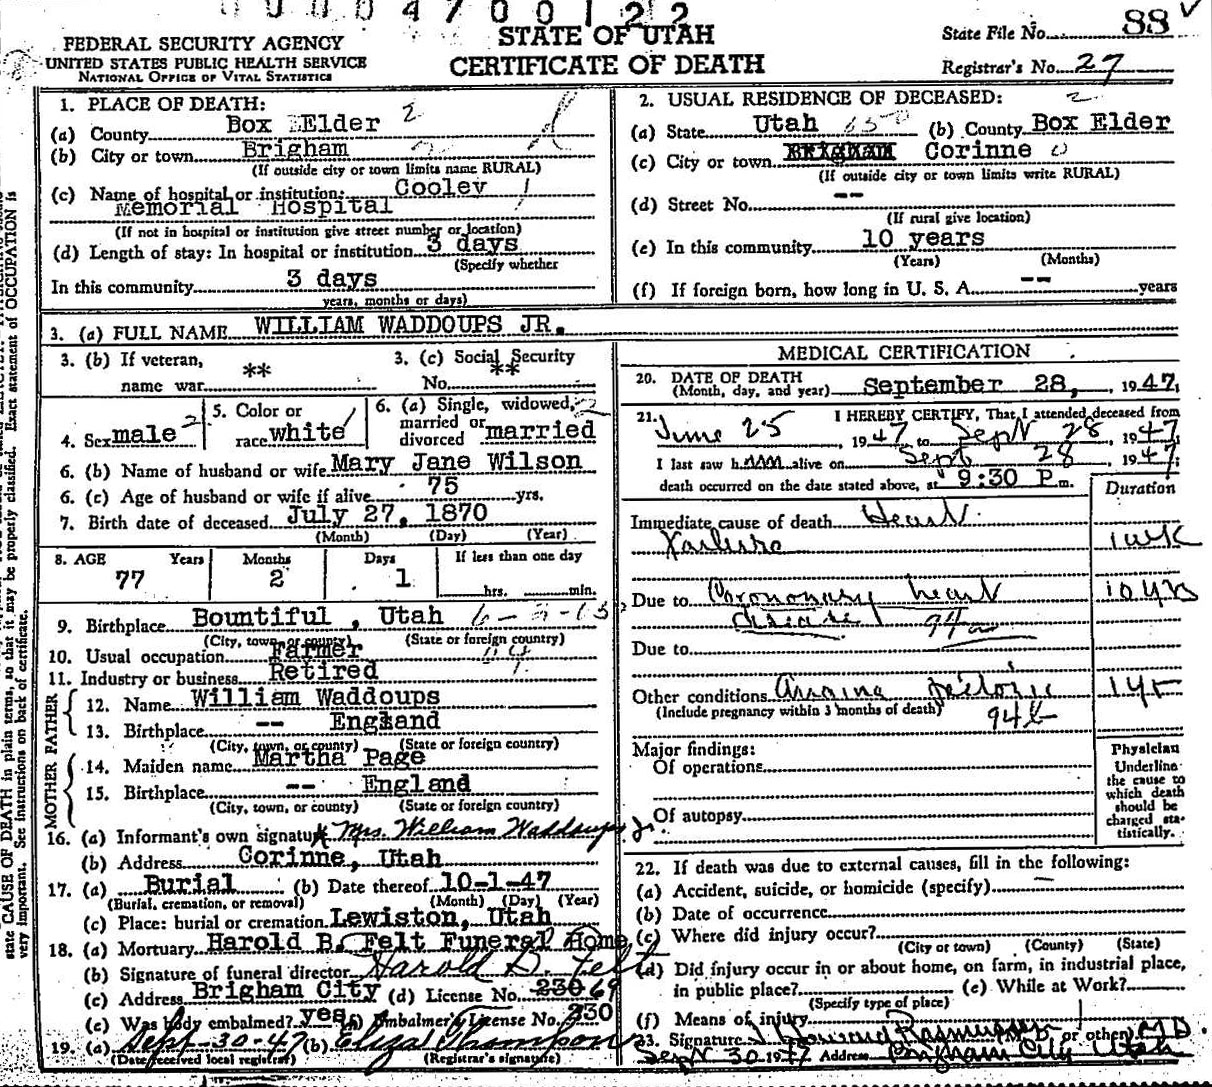 0000470012 2
STATE OF UTAH
CERTIFICATE OF DEATH
FEDERAL SECURITY AGENCY
UNITED STATES PUBLIC HEALTH SERVICE
NATIONAL OFFICE OF VITAL STATISTICS
State File No. 88
Registrar's No. 27
1. PLACE OF DEATH: 2
(a) County Box Elder
(b) City or town Brigham
(If outside city or town limits name RURAL)
(c) Name of hospital or institution: Cooley
Memorial Hospital
(If not in hospital or institution give street number or location)
(d) Length of stay: In hospital or institution 3 days
(Specify whether
In this community 3 days
years, months or days)
2. USUAL RESIDENCE OF DECEASED: 2
(a) State Utah 650 (b) County Box Elder
(c) City or town Brigham Corinne 0
(If outside city or town limits write RURAL)
(d) Street No. --
(If rural give location)
(e) In this community 10 years
(Years) (Months)
(f) If foreign born, how long in U. S. A. -- years
3. (a) FULL NAME WILLIAM WADDOUPS JR.
3. (b) If veteran, name war **
3. (c) Social Security No. **
4. Sex male 2
5. Color or race white 1
6. (a) Single, widowed, married or divorced married 2
6. (b) Name of husband or wife Mary Jane Wilson
6. (c) Age of husband or wife if alive 75 yrs.
7. Birth date of deceased July 27, 1870
(Month) (Day) (Year)
8. AGE Years Months Days If less than one day
77 2 1 hrs. min.
9. Birthplace Bountiful, Utah
(City, town, or county) (State or foreign country)
10. Usual occupation Farmer
11. Industry or business Retired
FATHER
12. Name William Waddoups
13. Birthplace -- England
(City, town, or county) (State or foreign country)
MOTHER
14. Maiden name Martha Page
15. Birthplace -- England
(City, town, or county) (State or foreign country)
16. (a) Informant's own signature Mrs. William Waddoups Jr.
(b) Address Corinne, Utah
17. (a) Burial (b) Date thereof 10-1-47
(Burial, cremation, or removal) (Month) (Day) (Year)
(c) Place: burial or cremation Lewiston, Utah
18. (a) Mortuary Harold B. Felt Funeral Home
(b) Signature of funeral director Harold B. Felt
(c) Address Brigham City (d) License No. 230 69
(e) Was body embalmed? yes (f) Embalmer's License No. 230
19. (a) Sept-30-47 (b) Eliza Thompson
(Date received local registrar) (Registrar's signature)
MEDICAL CERTIFICATION
20. DATE OF DEATH
(Month, day, and year) September 28, 1947
21. I HEREBY CERTIFY, That I attended deceased from
June 25, 1947 to Sept 28, 1947
I last saw him alive on Sept 28 1947;
death occurred on the date stated above, at 9:30 P m.
Duration
Immediate cause of death Heart
Failure 1 wk
Due to Coronary heart 10 yrs
disease 94a
Due to
Other conditions Angina Pectoris 1 yr
(Include pregnancy within 3 months of death) 94b
Major findings:
Of operations
Of autopsy
Physician
Underline
the cause to
which death
should be
charged sta-
tistically.
22. If death was due to external causes, fill in the following:
(a) Accident, suicide, or homicide (specify)
(b) Date of occurrence
(c) Where did injury occur?
(City or town) (County) (State)
(d) Did injury occur in or about home, on farm, in industrial place,
in public place? (e) While at Work?
(Specify type of place)
(f) Means of injury
23. Signature J Howard Rasmussen M. D. or other M.D.
Sept 30 1947 Address Brigham City Utah
state CAUSE OF DEATH in plain terms, so that it may be properly classified. Exact statement of OCCUPATION is
very important. See instructions on back of certificate.